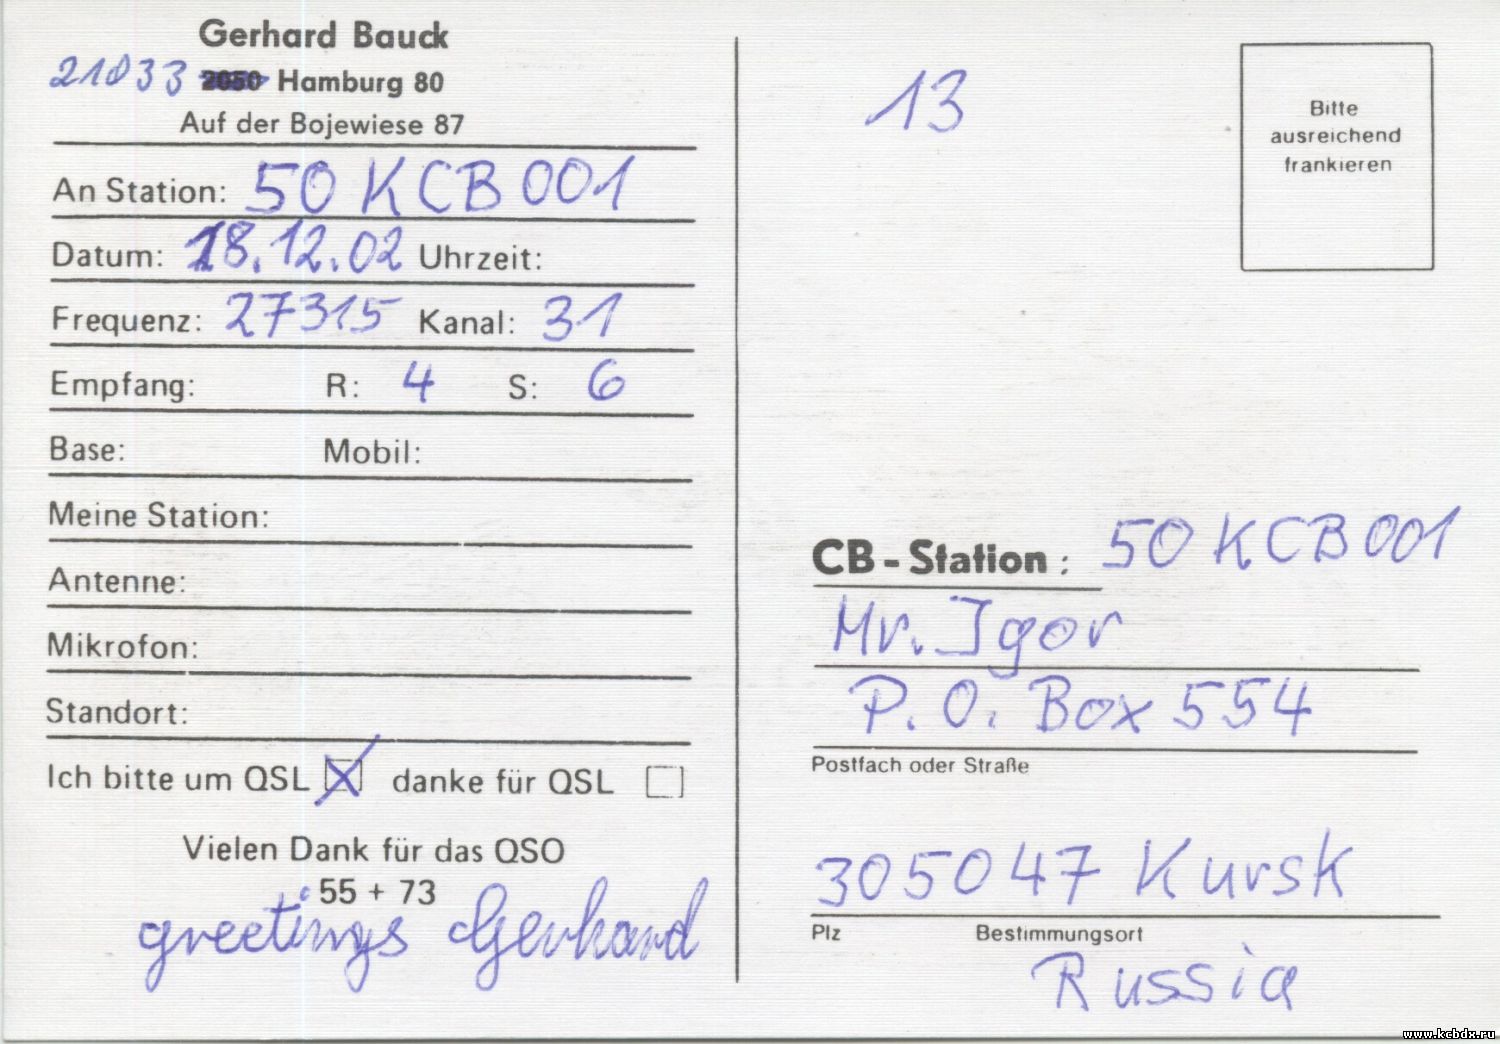 Gerhard Bauck
21033 2050 Hamburg 80
Auf der Bojewiese 87
An Station: 50 KCB 001
Datum: 18.12.02 Uhrzeit:
Frequenz: 27315 Kanal: 31
Empfang: R: 4 S: 6
Base: Mobil:
Meine Station:
Antenne:
Mikrofon:
Standort:
Ich bitte um QSL danke für QSL
Vielen Dank für das QSO
55 + 73
greetings Gerhard
13
Bitte
ausreichend
frankieren
CB - Station : 50 KCB 001
Mr. Igor
P. O. Box 554
Postfach oder Straße
305047 Kursk
Plz Bestimmungsort
Russia
www.kcbdx.ru